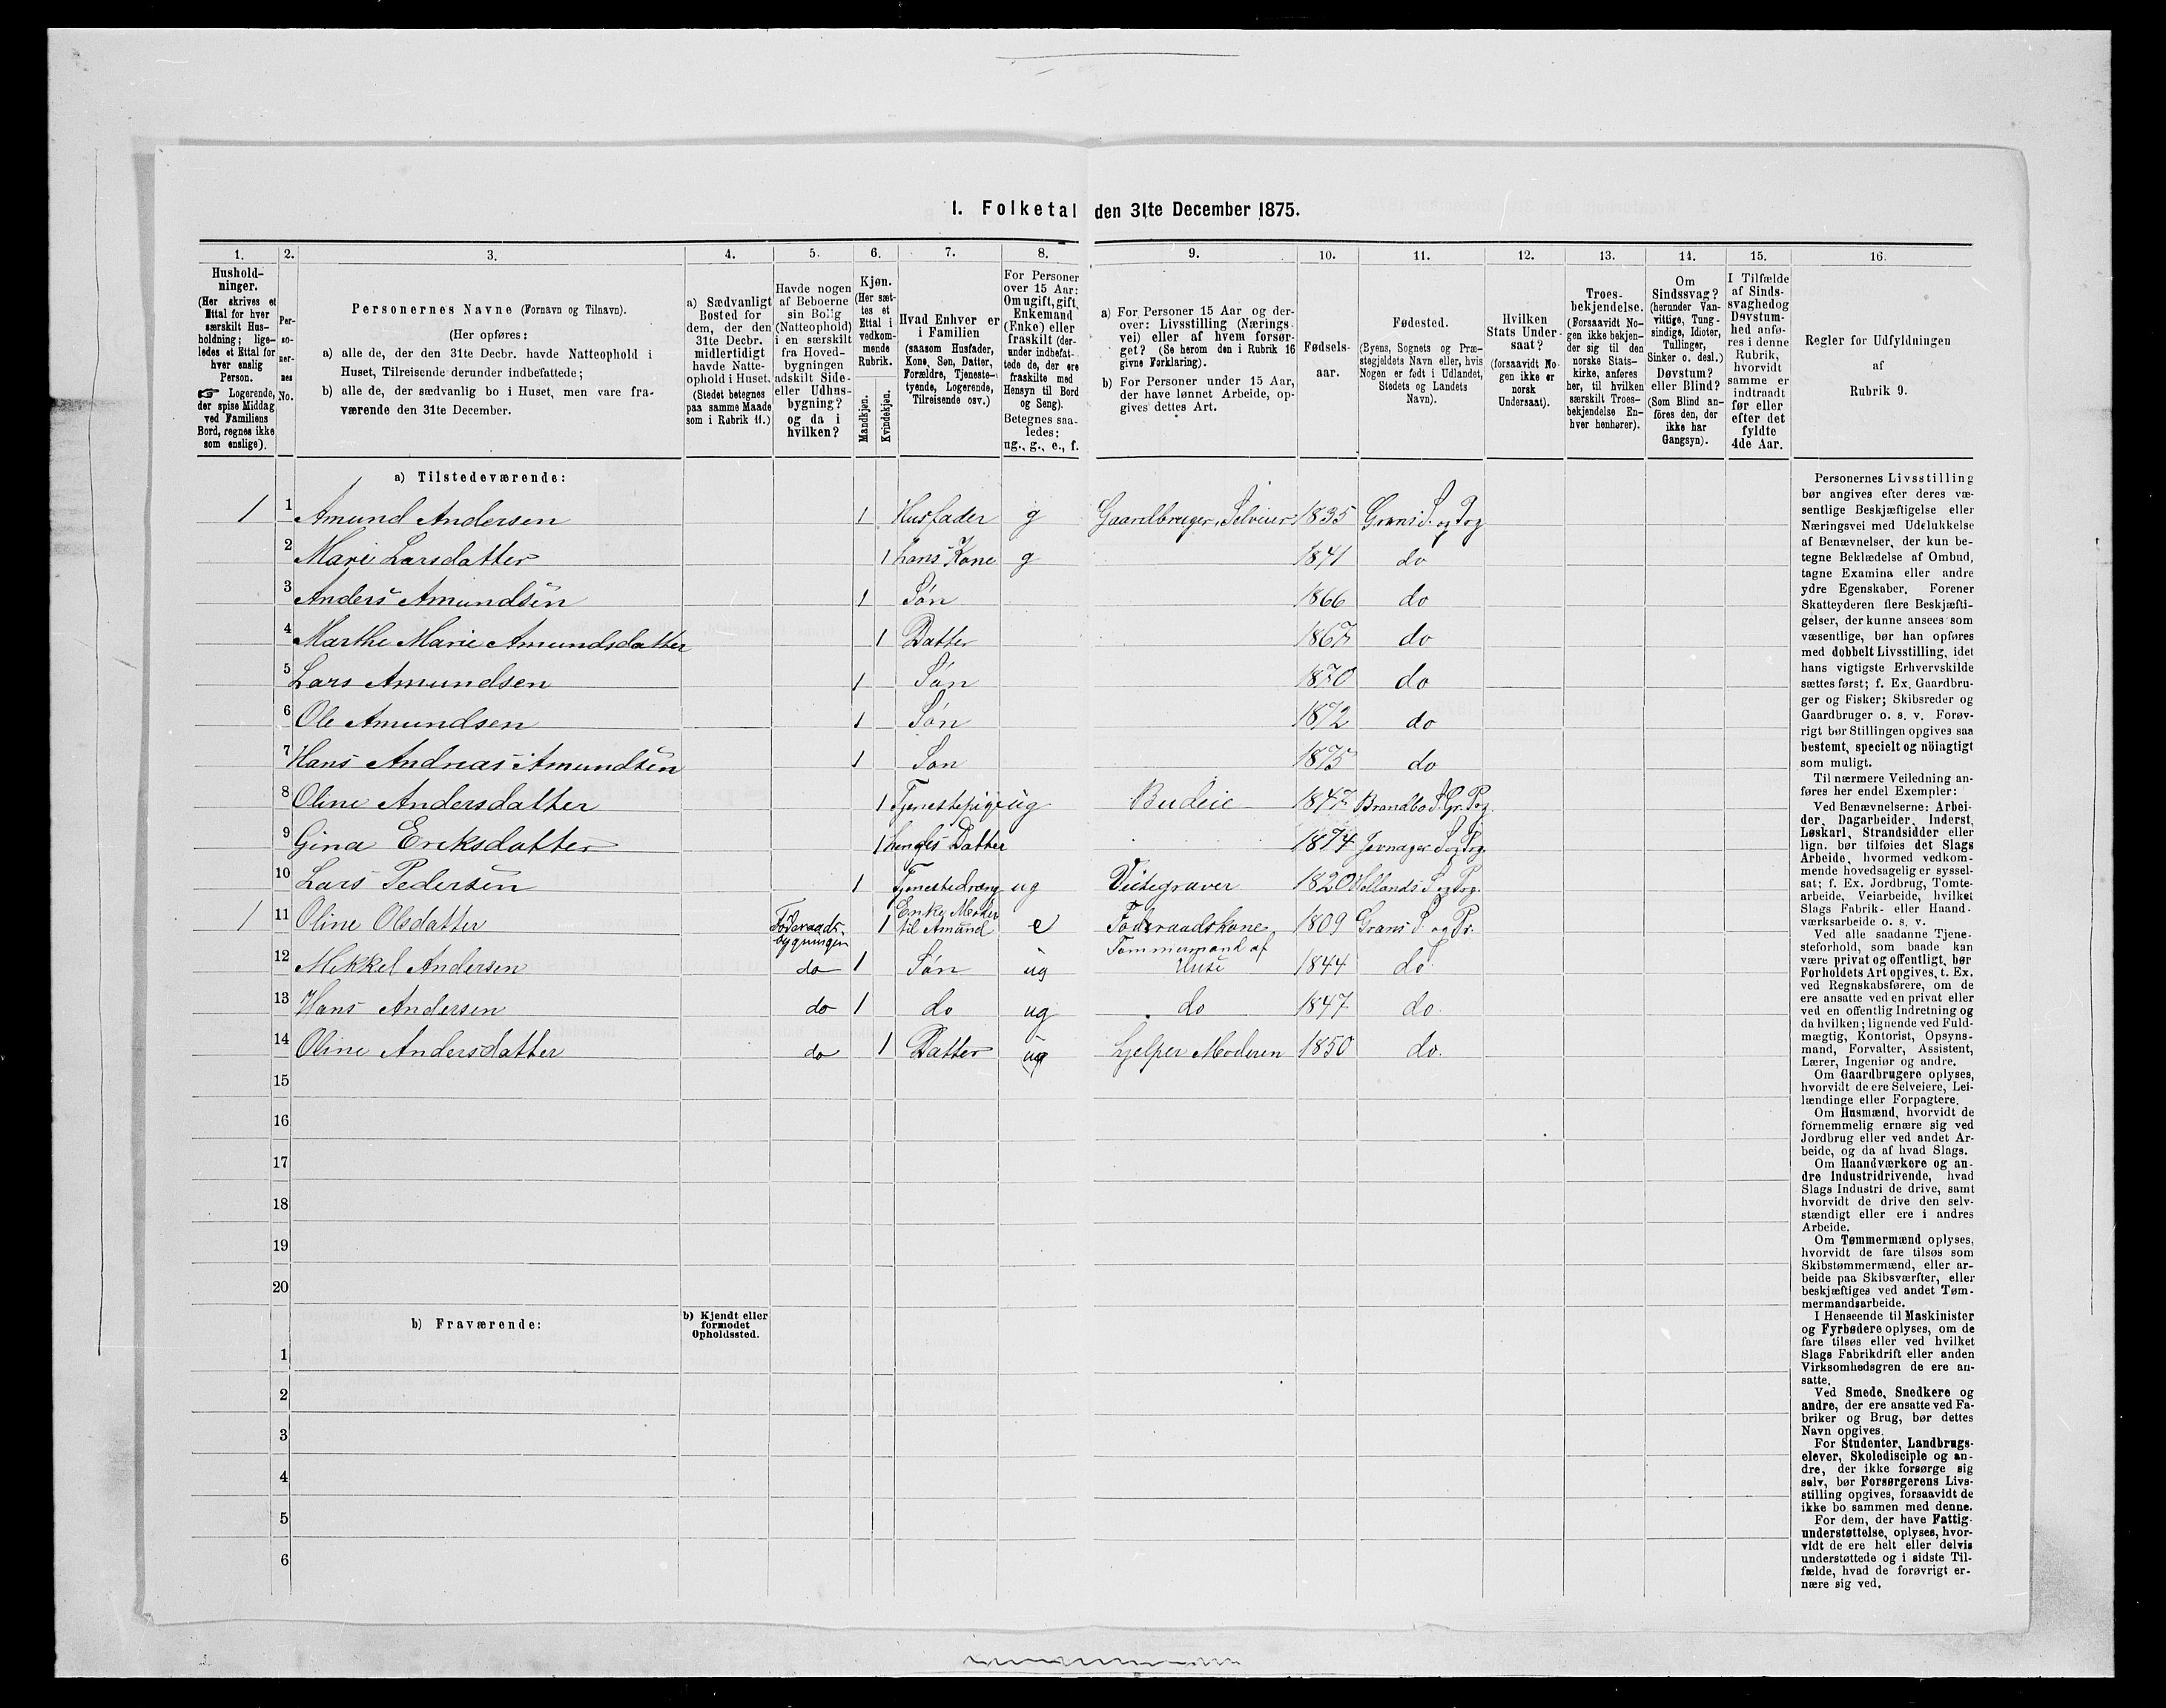 I. Folketal den 31te December 1875.
1. 2. 3. 4. 5. 6. 7. 8. 9. 10. 11. 12. 13. 14. 15. 16.
Hushold-
ninger.
(Her skrives et
Ettal for hver
særskilt Hus-
holdning; lige-
ledes et Ettal for
hver enslig
Person.
☞ Logerende,
der spise Middag
ved Familiens
Bord, regnes ikke
som enslige).
Per-
so-
ner-
nes
No.
Personernes Navne (Fornavn og Tilnavn).
(Her opføres:
a) alle de, der den 31te Decbr. havde Natteophold i
Huset, Tilreisende derunder indbefattede;
b) alle de, der sædvanlig bo i Huset, men vare fra-
værende den 31te December.
a) Sædvanligt
Bosted for
dem, der den
31te Decbr.
midlertidigt
havde Natte-
ophold i Huset.
(Stedet betegnes
paa samme Maade
som i Rubrik 11.)
Havde nogen
af Beboerne
sin Bolig
(Natteophold)
i en særskilt
fra Hoved-
bygningen
adskilt Side-
eller Udhus-
bygning?
og da i
hvilken?
Kjøn.
(Her sæt-
tes et
Ettal i
vedkom-
mende
Rubrik.
Mandkjøn.
Kvindekjøn.
Hvad Enhver er
i Familien
(saasom Husfader,
Kone, Søn, Datter,
Forældre, Tjeneste-
tyende, Logerende,
Tilreisende osv.)
For Personer
over 15 Aar:
Om ugift, gift,
Enkemand
(Enke) eller
fraskilt (der-
under indbefat-
tede de, der ere
fraskilte med
Hensyn til Bord
og Seng).
Betegnes saa-
ledes:
ug., g., e., f.
a) For Personer 15 Aar og der-
over: Livsstilling (Nærings-
vei) eller af hvem forsør-
get? (Se herom den i Rubrik 16
givne Forklaring).
b) For Personer under 15 Aar,
der have lønnet Arbeide, op-
gives dettes Art.
Fødsels-
aar.
Fødested.
(Byens, Sognets og Præ-
stegjeldets Navn eller, hvis
Nogen er født i Udlandet,
Stedets og Landets
Navn).
Hvilken
Stats Under-
saat?
(forsaavidt No-
gen ikke er
norsk
Undersaat).
Troes-
bekjendelse.
(Forsaavidt No-
gen ikke bekjen-
der sig til den
norske Stats-
kirke, anføres
her, til hvilken
særskilt Troes-
bekjendelse En-
hver henhører).
Om
Sindssvag?
(herunder Van-
vittige, Tung-
sindige, Idioter,
Tullinger,
Sinker o. desl.)
Døvstum?
eller Blind?
(Som Blind an-
föres den, der
ikke har
Gangsyn).
I Tilfælde
af Sinds-
svaghed og
Døvstum-
hed anfø-
res i denne
Rubrik,
hvorvidt
samme er
indtraadt
før eller
efter det
fyldte
4de Aar.
Regler for Udfyldningen
af
Rubrik 9.
a) Tilstedeværende:
1 1 Amund Andersen 1 Husfader g Gaardbruger, Selveier 1835 Grans S. og Prg
2 Mari Larsdatter 1 hans Kone g 1841 do
3 Anders Amundsen 1 Søn 1866 do
4 Marthe Marie Amundsdatter 1 Datter 1867 do
5 Lars Amundsen 1 Søn 1870 do
6 Ole Amundsen 1 Søn 1872 do
7 Hans Andreas Amundsen 1 Søn 1875 do
8 Oline Andersdatter 1 Tjenestepige ug Budeie 1847 Brandbo S. Gr. Prg.
9 Gina Eriksdatter 1 hendes Datter 1874 Jevnager S og Prg.
10 Lars Pedersen 1 Tjenestedreng ug 1820 S og Prg.
1 11 Oline Olsdatter Føderaads-
bygningen 1 Enke Moder
til Amund e Føderaadskone 1809 Grans S. og Pr.
12 Mikkel Andersen do 1 Søn ug Tømmermand af
Huse 1844 do
13 Hans Andersen do 1 do ug do 1847 do
14 Oline Andersdatter do 1 Datter ug hjelper Moderen 1850 do.
15
16
17
18
19
20
b) Fraværende:
b) Kjendt eller
formodet
Opholdssted.
1
2
3
4
5
6
Personernes Livsstilling
bør angives efter deres væ-
sentlige Beskjæftigelse eller
Næringsvei med Udelukkelse
af Benævnelser, der kun be-
tegne Beklædelse af Ombud,
tagne Examina eller andre
ydre Egenskaber. Forener
Skatteyderen flere Beskjæfti-
gelser, der kunne ansees som
væsentlige, bør han opføres
med dobbelt Livsstilling, idet
hans vigtigste Erhvervskilde
sættes først; f. Ex. Gaardbru-
ger og Fisker; Skibsreder og
Gaardbruger o. s. v. Forøv-
rigt bør Stillingen opgives saa
bestemt, specielt og nöiagtigt
som muligt.
Til nærmere Veiledning an-
føres her endel Exempler:
Ved Benævnelserne: Arbei-
der, Dagarbeider, Inderst,
Løskarl, Strandsidder eller
lign. bør tilføies det Slags
Arbeide, hvormed vedkom-
mende hovedsagelig er syssel-
sat; f. Ex. Jordbrug, Tomte-
arbeide, Veiarbeide, hvilket
Slags Fabrik- eller Haand-
værksarbeide o. s. v.
Ved alle saadanne Tjene-
steforhold, som baade kan
være privat og offentligt, bør
Forholdets Art opgives, t. Ex.
ved Regnskabsførere, om de
ere ansatte ved en privat eller
ved en offentlig Indretning og
da hvilken; lignende ved Fuld-
mægtig, Kontorist, Opsyns-
mand, Forvalter, Assistent,
Lærer, Ingeniør og andre.
Om Gaardbrugere oplyses,
hvorvidt de ere Selveiere, Lei-
lændinge eller Forpagtere.
Om Husmænd, hvorvidt de
fornemmelig ernære sig ved
Jordbrug eller ved andet Ar-
beide, og da af hvad Slags.
Om Haandværkere og an-
dre Industridrivende, hvad
Slags Industri de drive, samt
hvorvidt de drive den selv-
stændigt eller ere i andres
Arbeide.
Om Tømmermænd oplyses,
hvorvidt de fare tilsøs som
Skibstømmermænd, eller ar-
beide paa Skibsværfter, eller
beskjæftiges ved andet Tøm-
mermandsarbeide.
I Henseende til Maskinister
og Fyrbødere oplyses, om de
fare tilsøs eller ved hvilket
Slags Fabrikdrift eller anden
Virksomhedsgren de ere an-
satte.
Ved Smede, Snedkere og
andre, der ere ansatte ved Fa-
briker og Brug, bør dettes
Navn opgives.
For Studenter, Landbrugs-
elever, Skoledisciple og an-
dre, der ikke forsørge sig
selv, bør Forsørgerens Livs-
stilling opgives, forsaavidt de
ikke bo sammen med denne.
For dem, der have Fattig-
understøttelse, oplyses, hvor-
vidt de ere helt eller delvis
understøttede og i sidste Til-
fælde, hvad de forøvrigt er-
nære sig ved.